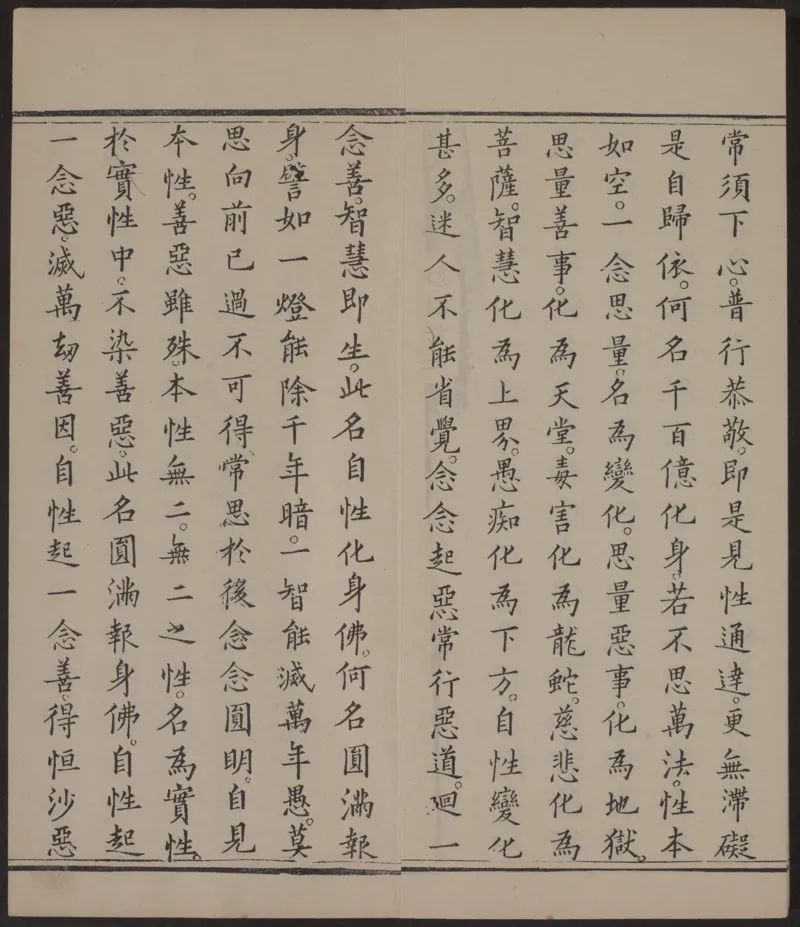 常須下心。普行恭敬。即是見性通達。更無滯礙
是自歸依。何名千百億化身。若不思萬法。性本
如空。一念思量。名為變化。思量惡事。化為地獄。
思量善事。化為天堂。毒害化為龍蛇。慈悲化為
菩薩。智慧化為上界。愚痴化為下方。自性變化
甚多。迷人不能省覺。念念起惡常行惡道。迴一
念善。智慧即生。此名自性化身佛。何名圓滿報
身。譬如一燈能除千年暗。一智能滅萬年愚。莫
思向前已過不可得。常思於後念念圓明。自見
本性。善惡雖殊。本性無二。無二之性。名為實性。
於實性中。不染善惡。此名圓滿報身佛。自性起
一念惡。滅萬劫善因。自性起一念善。得恒沙惡